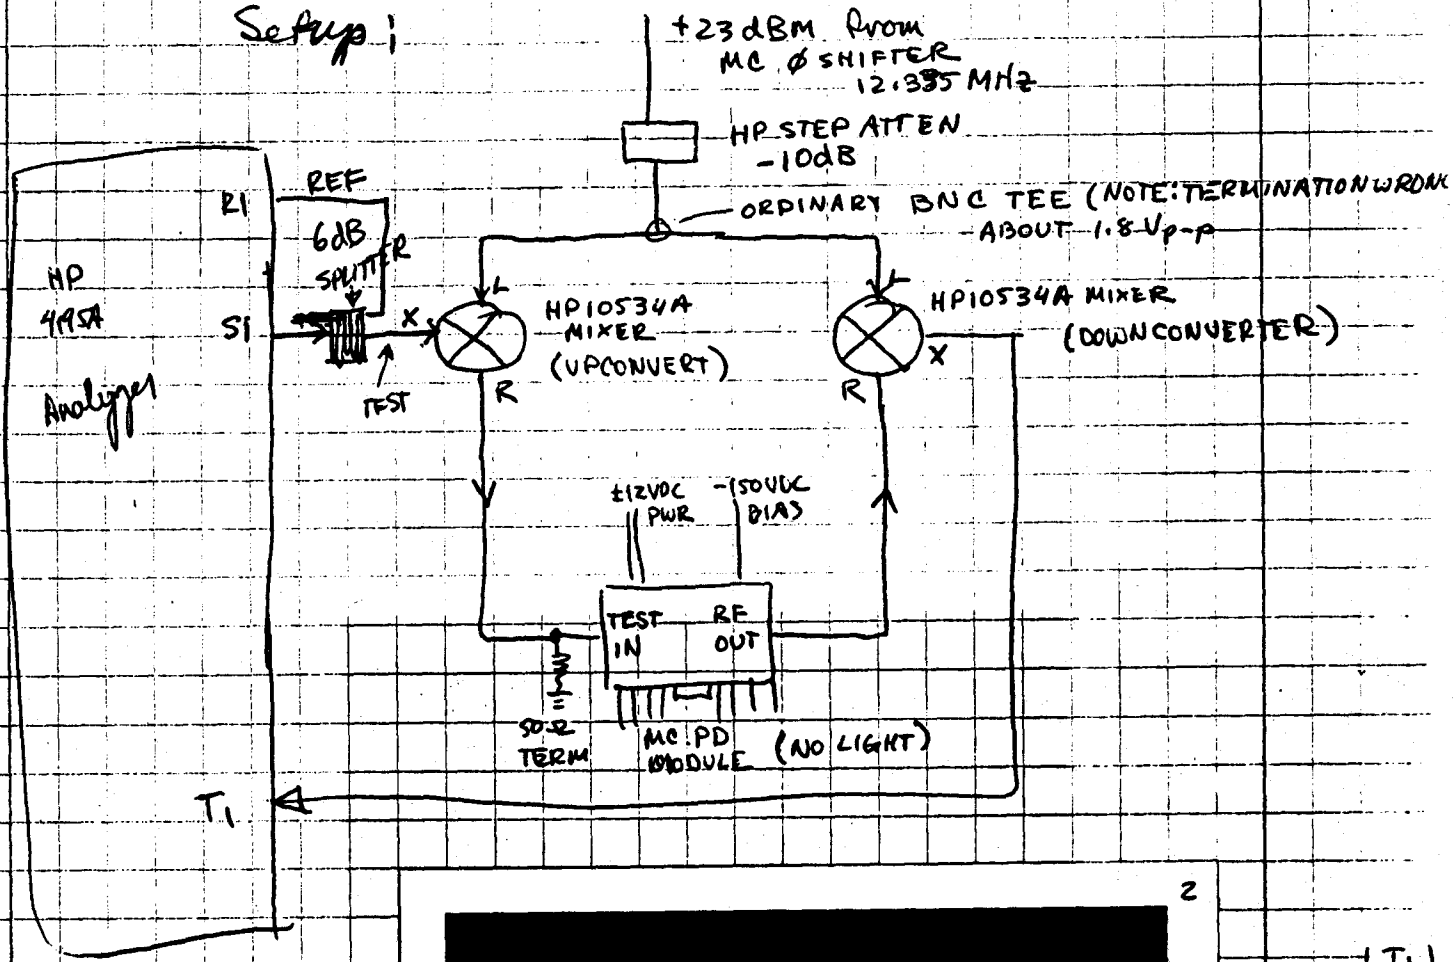 Setup;
+23dBm from
MC Ø SHIFTER
HP STEP ATTEN
-10dB
ORDINARY BNC TEE (NOTE: TERMINATION WRONG
-ABOUT 1.8 Vp-p
R1
REF
6dB
SPLITTER
HP
4195A
Analyzer
S1
X
TEST
L
HP10534A
MIXER
(UPCONVERT)
R
L
HP10534A MIXER
(DOWNCONVERTER)
X
R
±12VDC
PWR
-150VDC
BIAS
TEST
IN
RF
OUT
50Ω
TERM
MC PD
MODULE
(NO LIGHT)
T1
2